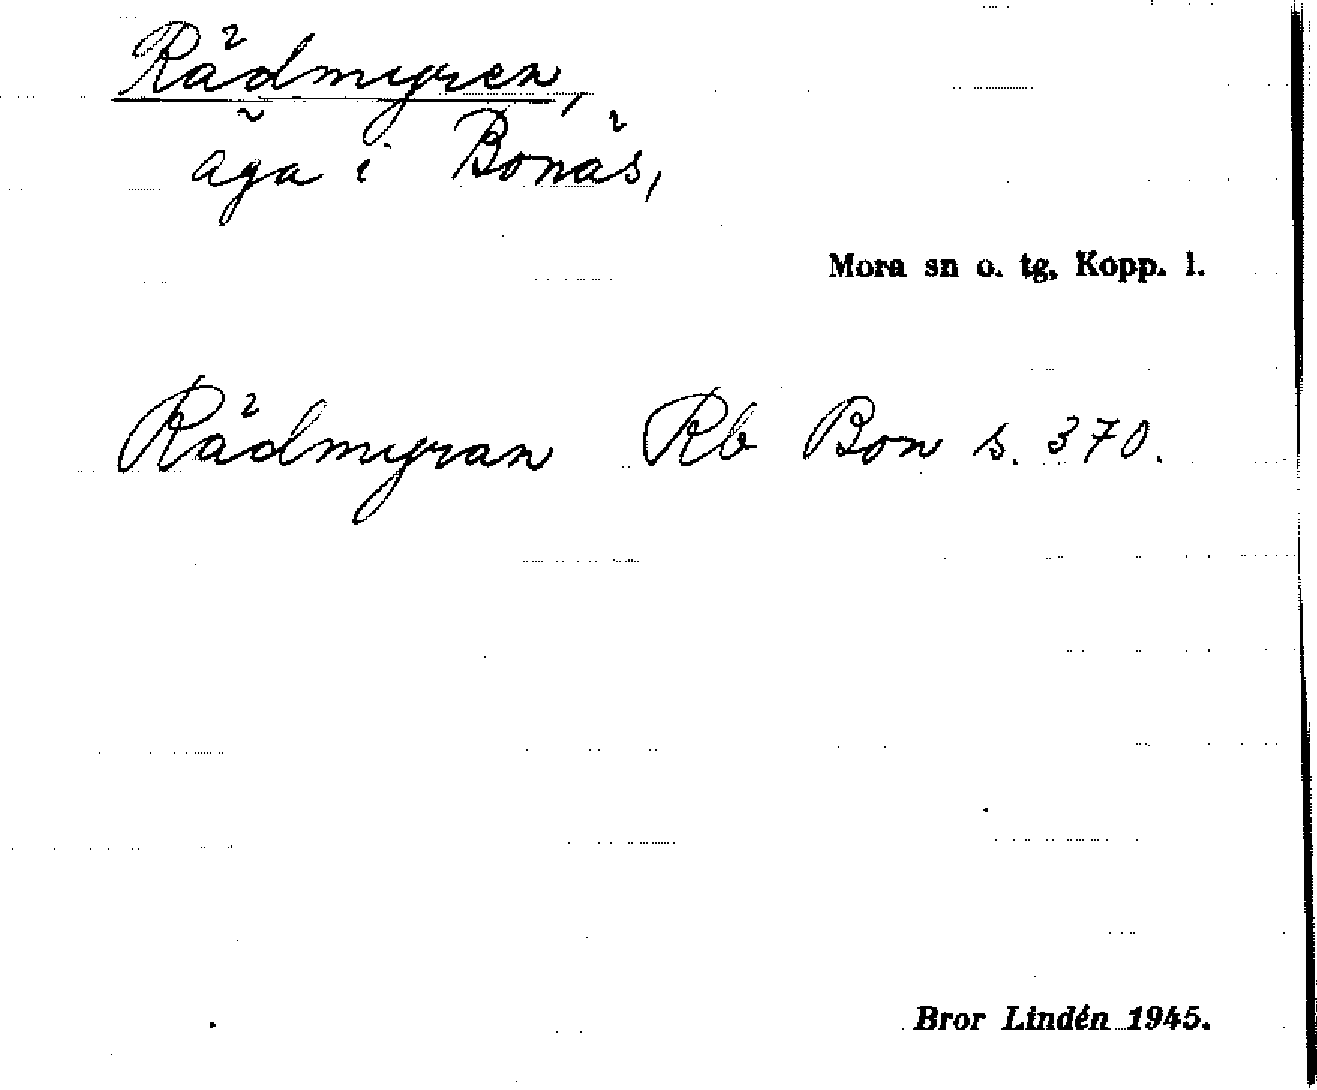 Rädmyren,
äga i Bonäs,
Mora sn o. tg, Kopp. l.
Rädmyran Rb Bon s. 370.
Bror Lindén 1945.